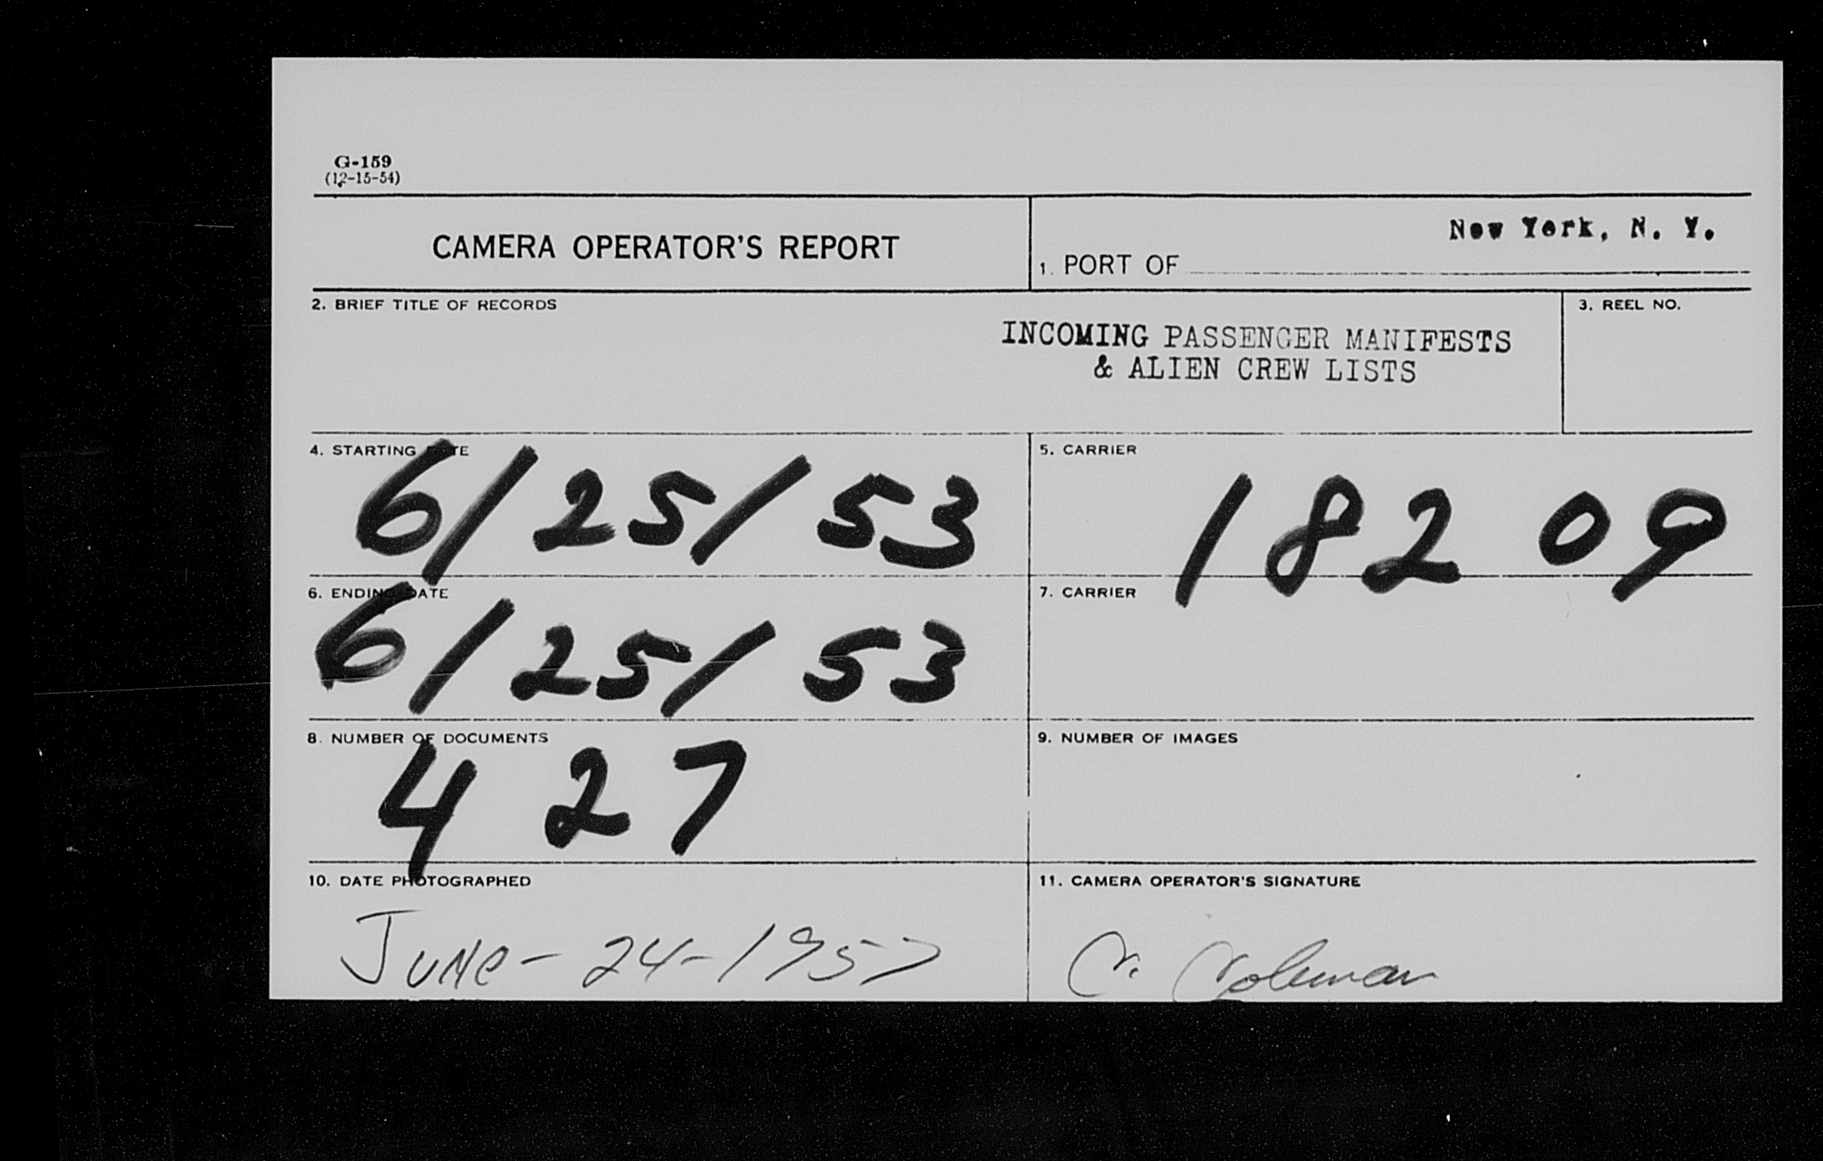 G-159
(12-15-54)
CAMERA OPERATOR'S REPORT
New York, N. Y.
1. PORT OF
2. BRIEF TITLE OF RECORDS
INCOMING PASSENGER MANIFESTS
& ALIEN CREW LISTS
3. REEL NO.
4. STARTING DATE
6/25/53
5. CARRIER
182 09
6. ENDING DATE
6/25/53
7. CARRIER
8. NUMBER OF DOCUMENTS
427
9. NUMBER OF IMAGES
10. DATE PHOTOGRAPHED
June-24-1957
11. CAMERA OPERATOR'S SIGNATURE